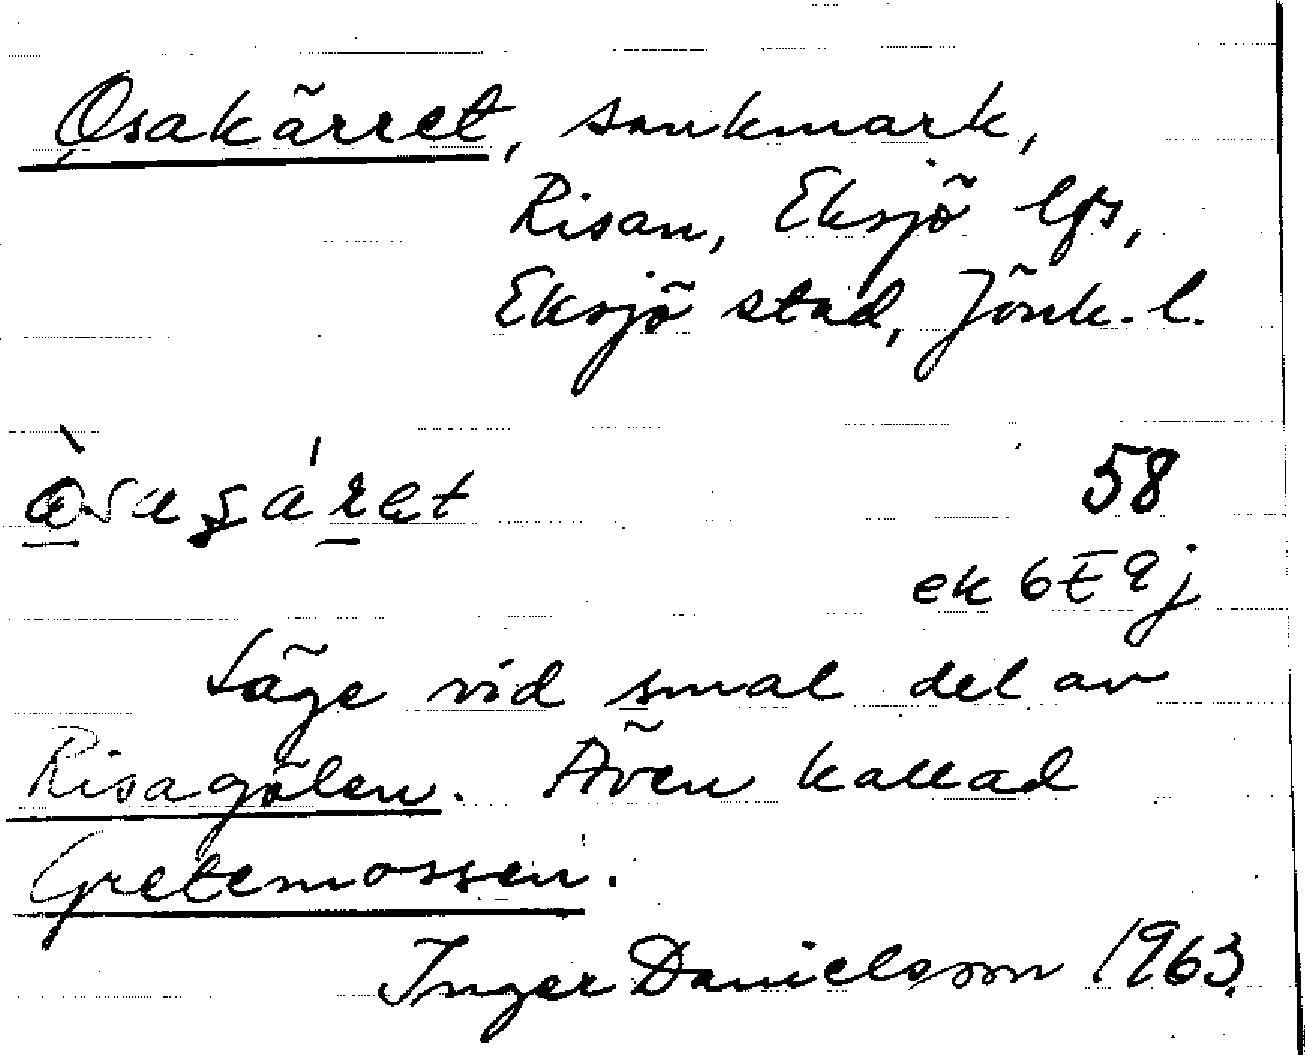 Osakärret, sankmark,
Risan, Eksjö lfs,
Eksjö stad, Jönk. l.
58
ek 6E9j
Läge vid smal del av
Risagölen. Även kallad
Gretemossen.
Inger Danielsson 1963.